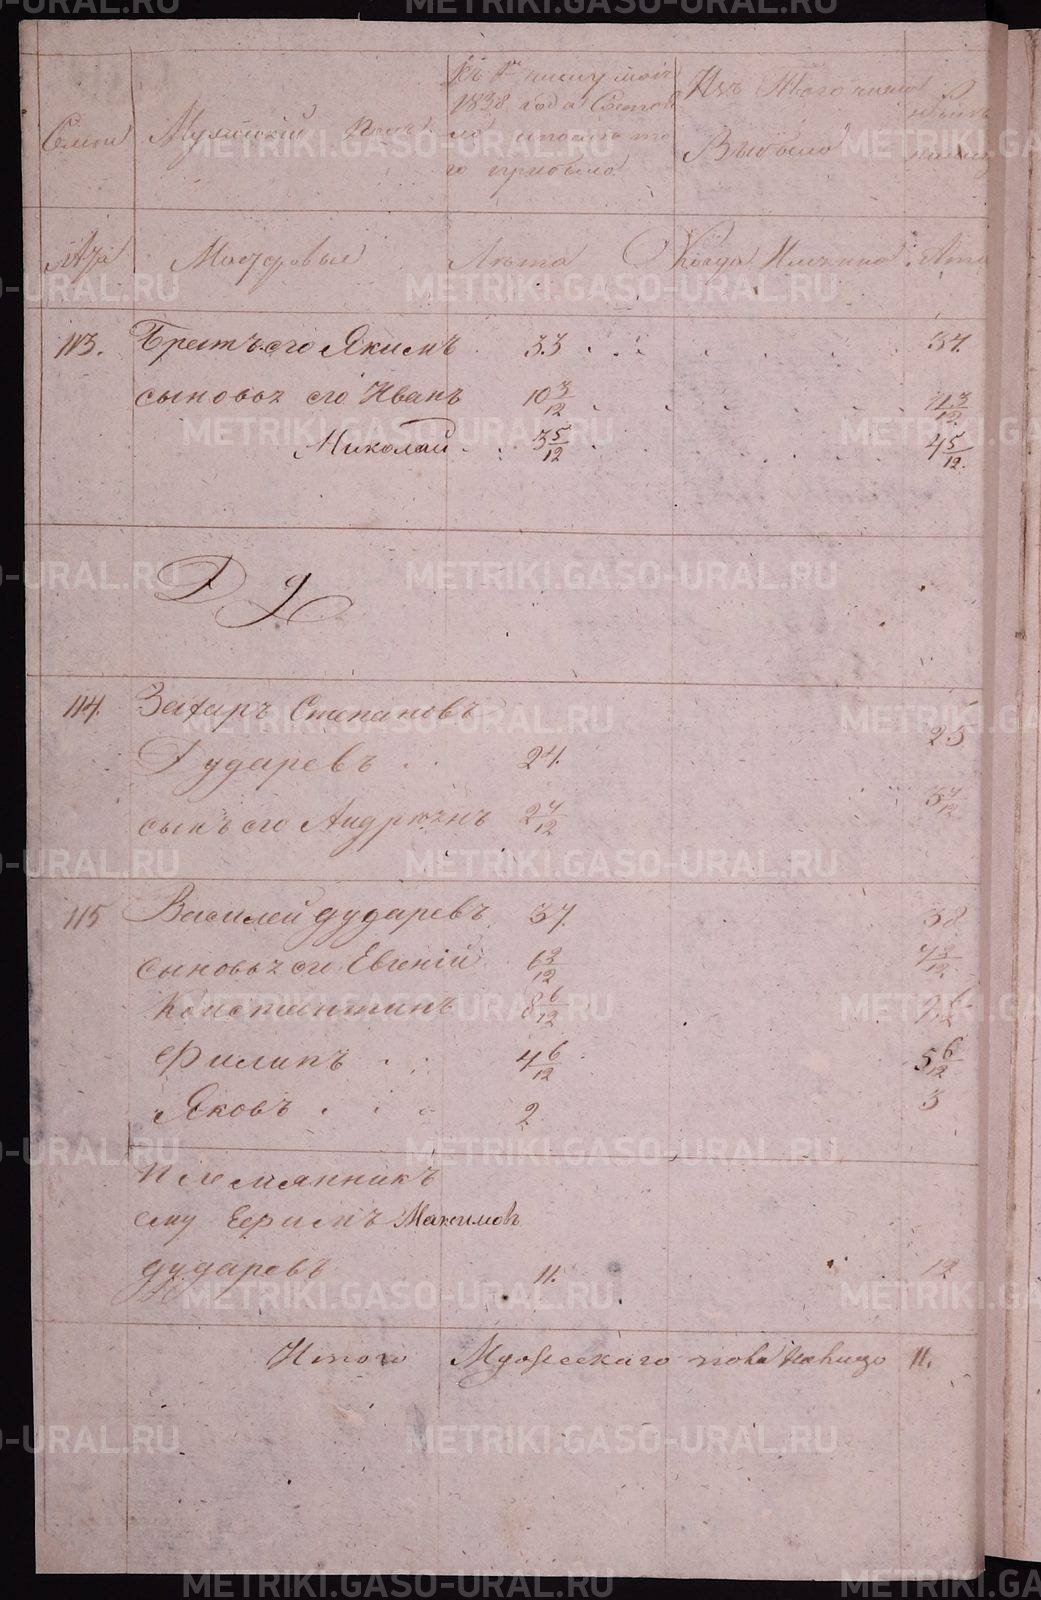 Семьи
Мужескій Полъ
Къ 1му числу маія
1838 года Состоя
ло и послѣ то
го прибыло
Изъ Того числа
Выбыло
Мастеровые
Лѣта
Когда И
Лѣта
113. Братъ его Якимъ 33 37.
сыновья его Иванъ 10 3/12 11 3/12
Николай 3 5/12 4 5/12
Д
114. Захаръ Степановъ
Дударевъ 24. 25
сынъ его Андреянъ 2 4/12 3 4/12
115 Василей дударевъ 37. 38
сыновья его Евгеній
Константинъ 8 6/12 9 6/12
Филипъ 4 6/12 5 6/12
Яковъ 2 3
Племянникъ
ему Ефимъ Максимовъ
дударевъ 11. 12
Итого Мужескаго пола налицо 11.
METRIKI.GASO-URAL.RU